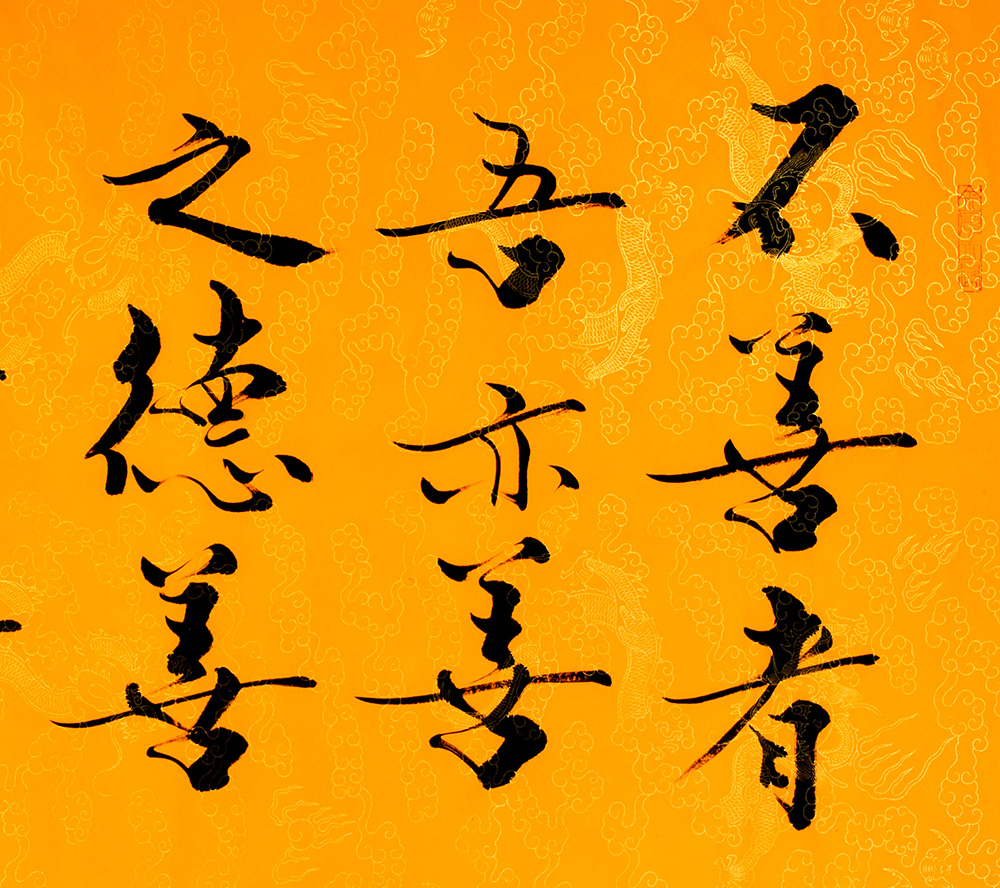 不善者
吾亦善
之德善